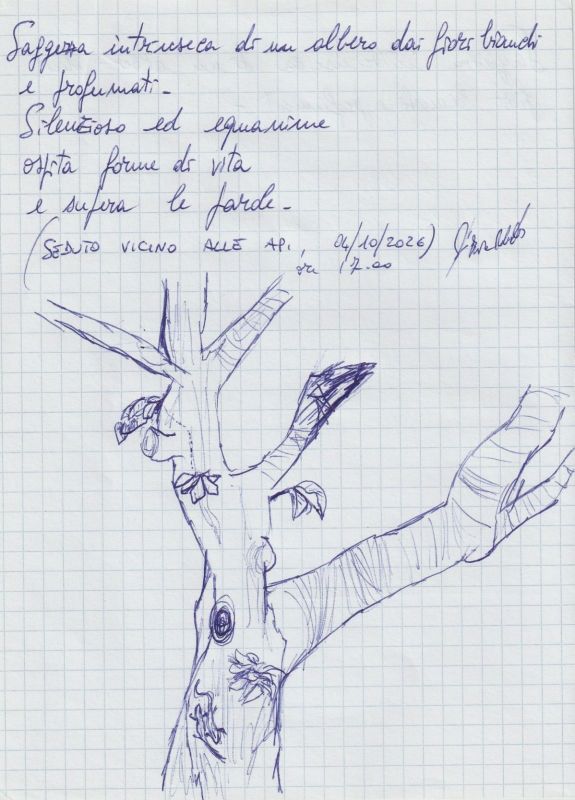 Saggezza intrinseca di un albero dai fiori bianchi
e profumati.
Silenzioso ed equanime
ospita forme di vita
e supera le parole.
(SEDUTO VICINO ALLE API, 04/10/2026)
ore 17.00